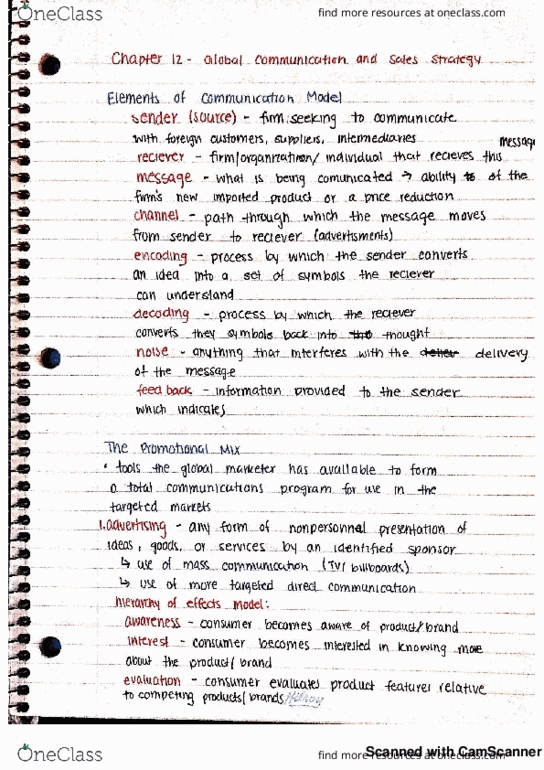 OneClass
find more resources at oneclass.com
Chapter 12 - Global Communication and Sales Strategy
Elements of Communication Model
sender (source) - firm seeking to communicate
with foreign customers, suppliers, intermediaries
message
reciever - firm/organization/individual that recieves this
message - what is being comunicated → ability to of the
firm's new imported product or a price reduction
channel - path through which the message moves
from sender to reciever (advertisments)
encoding - process by which the sender converts
an idea into a set of symbols the reciever
can understand
decoding - process by which the reciever
converts they symbols back into the thought
noise - anything that interferes with the delivery
of the message
feed back - information provided to the sender
which indicates
The Promotional Mix
• tools the global marketer has available to form
a total communications program for use in the
targeted markets
1. advertising - any form of nonpersonnal presentation of
ideas, goods, or services by an identified sponsor
↳ use of mass communication (TV/billboards)
↳ use of more targeted direct communication
hierarchy of effects model:
awareness - consumer becomes aware of product/brand
interest - consumer becomes interested in knowing more
about the product/brand
evaluation - consumer evaluates product features relative
to competing products/brands
OneClass
find more resources at oneclass.com
Scanned with CamScanner